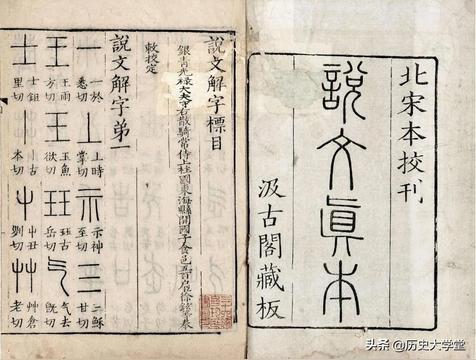 北宋本校刊
說文眞本
汲古閣藏板
說文解字標目
銀青光祿大夫守右散騎常侍上柱國東海縣開國子食邑五百戶臣徐鉉等奉
敕校定
說文解字第一
一 一於悉切 丄 上時掌切 示 示神至切 三 三穌甘切
王 王雨方切 玉 玉魚欲切 玨 玨古岳切 气 气去旣切
士 士鉏里切 丨 丨古本切 屮 屮丑列切 艸 艸倉老切
头条 @历史大学堂